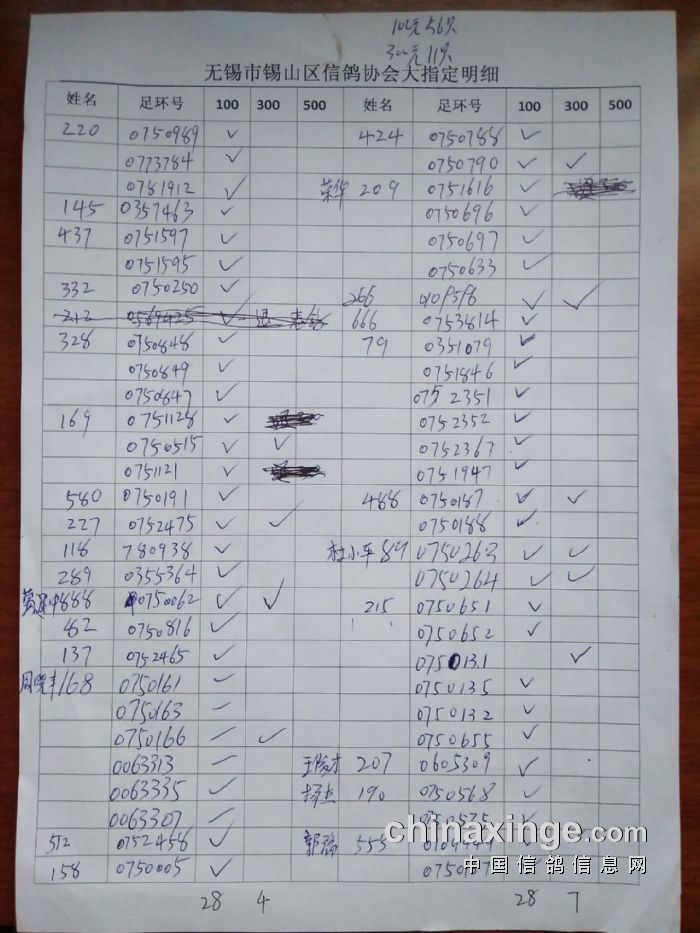 100元56只
300元11只
无锡市锡山区信鸽协会大指定明细
姓名 足环号 100 300 500 姓名 足环号 100 300 500
220 0750989 ✓ 424 0750788 ✓
0773784 ✓ 0750790 ✓ ✓
0781912 ✓ 荣华 209 0751616 ✓
145 0357463 ✓ 0750696 ✓
437 0751597 ✓ 0750697 ✓
0751595 ✓ 0750633 ✓
332 0750250 ✓ 266 0109598 ✓ ✓
212 0569425 ✓ 退 666 0753814 ✓
328 0750848 ✓ 79 0351079 ✓
0750849 ✓ 0751846 ✓
0750847 ✓ 0752351 ✓
169 0751128 ✓ 0752352 ✓
0750515 ✓ ✓ 0752367 ✓
0751121 ✓ 0751947 ✓
580 0750191 ✓ 488 0750187 ✓ ✓
227 0752475 ✓ ✓ 0750188 ✓
118 780938 ✓ 杜小平 89 0750263 ✓ ✓
289 0355364 ✓ 0750264 ✓ ✓
888 0750062 ✓ ✓ 215 0750651 ✓
82 0750816 ✓ 0750652 ✓
137 0752465 ✓ 0750131 ✓
周晓丰168 0750161 ✓ 0750135 ✓
0750163 ✓ 0750132 ✓
0750166 ✓ ✓ 0750655 ✓
0063313 ✓ 王俊才 207 0605309 ✓
0063335 ✓ 杨杰 190 0750568 ✓
0063307 ✓ ✓
512 0752458 ✓ 郭 555
158 0750005 ✓ ✓
28 4 28 7
chinaxinge.com
中国信鸽信息网